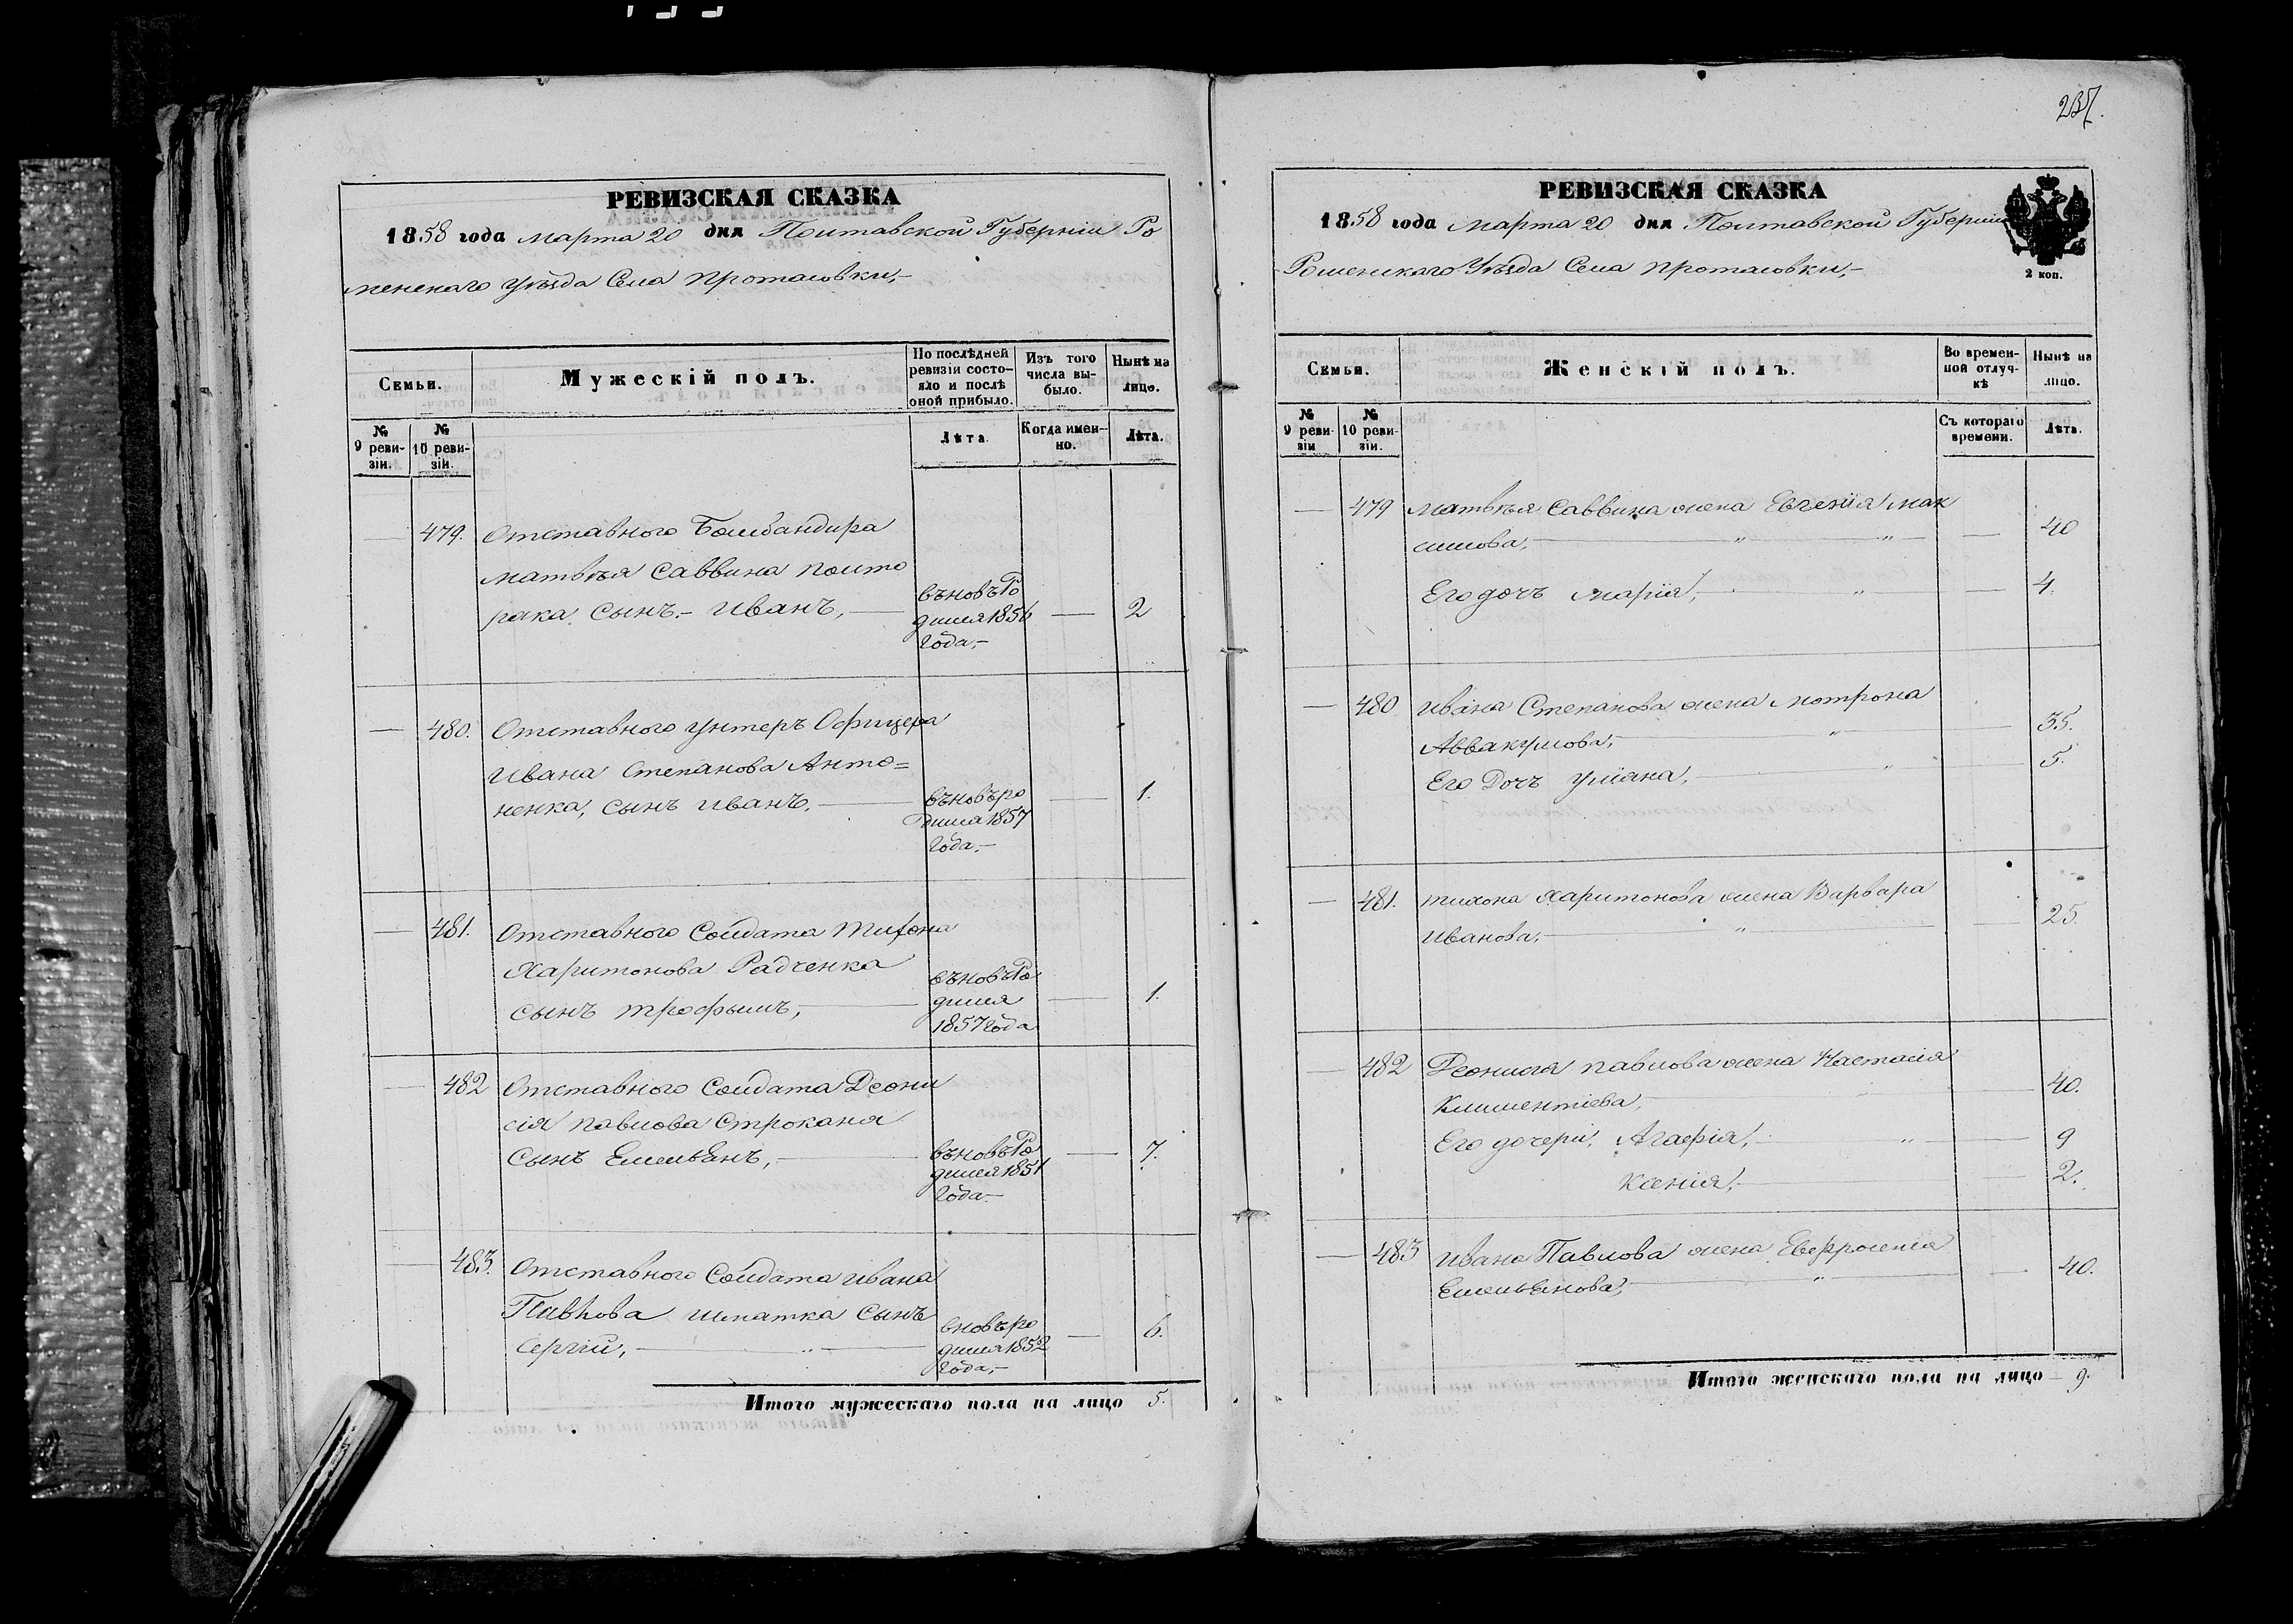 РЕВИЗСКАЯ СКАЗКА
1858 года марта 20 дня Полтавской Губерніи Ро
менскаго уѣзда Села Протасовки,-
Семьи.
Мужескій полъ.
По послѣдней ревизіи состо-яло и послѣ оной прибыло.
Изъ того числа вы-было.
Нынѣ на лицо.
№ 9 реви-зіи.
№ 10 реви-зіи.
Лѣта.
Когда имен-но.
Лѣта.
479. Отставного Бомбандира
Матвѣя Саввина Полто
рака сынъ.- Иванъ,
въновь Ро
дился 1856
года,-
2
480. Отставного унтеръ Офицера
Ивана Степанова Анто=
ненка, сынъ Иванъ,
въновь ро
дился 1857
года.-
1.
481. Отставного Солдата Тихона
Харитонова Радченка
сынъ Трофымъ,
въновь Ро
дился
1857 года
1.
482 Отставного Солдата Деони
сія Павлова Строканя
Сынъ Емельянъ,
въновь Ро
дился 1851
года.-
7.
483. Отставного Солдата Ивана
Павлова Шпатка Сынъ
Сергій,
вновь ро
дился 1852
года,-
6.
Итого мужескаго пола на лицо 5.
237.
РЕВИЗСКАЯ СКАЗКА
1858 года марта 20 дня Полтавской Губерніи
Роменскаго Уѣзда Села Протасовки,-
2 коп.
Семьи.
Женскій полъ.
Во времен-ной отлуч-кѣ
Нынѣ на лицо.
№ 9 реви-зіи
№ 10 реви-зіи.
Съ котораго времени.
Лѣта.
479 Матвѣя Саввина жена Евгенія Мак
симова, 40
Его дочь Марія, 4.
480 Ивана Степанова жена Мотрона
Аввакумова, 35.
Его Дочь Уліана, 5.
481. Тихона Харитонова жена Варвара
Иванова, 25.
482 Деонисія Павлова жена Настасія
Климентіева, 40.
Его дочери, Агафія, 9
Ксенія, 2.
483 Ивана Павлова жена Евфросинія
Емельянова, 40.
Итого женскаго пола на лицо 9.